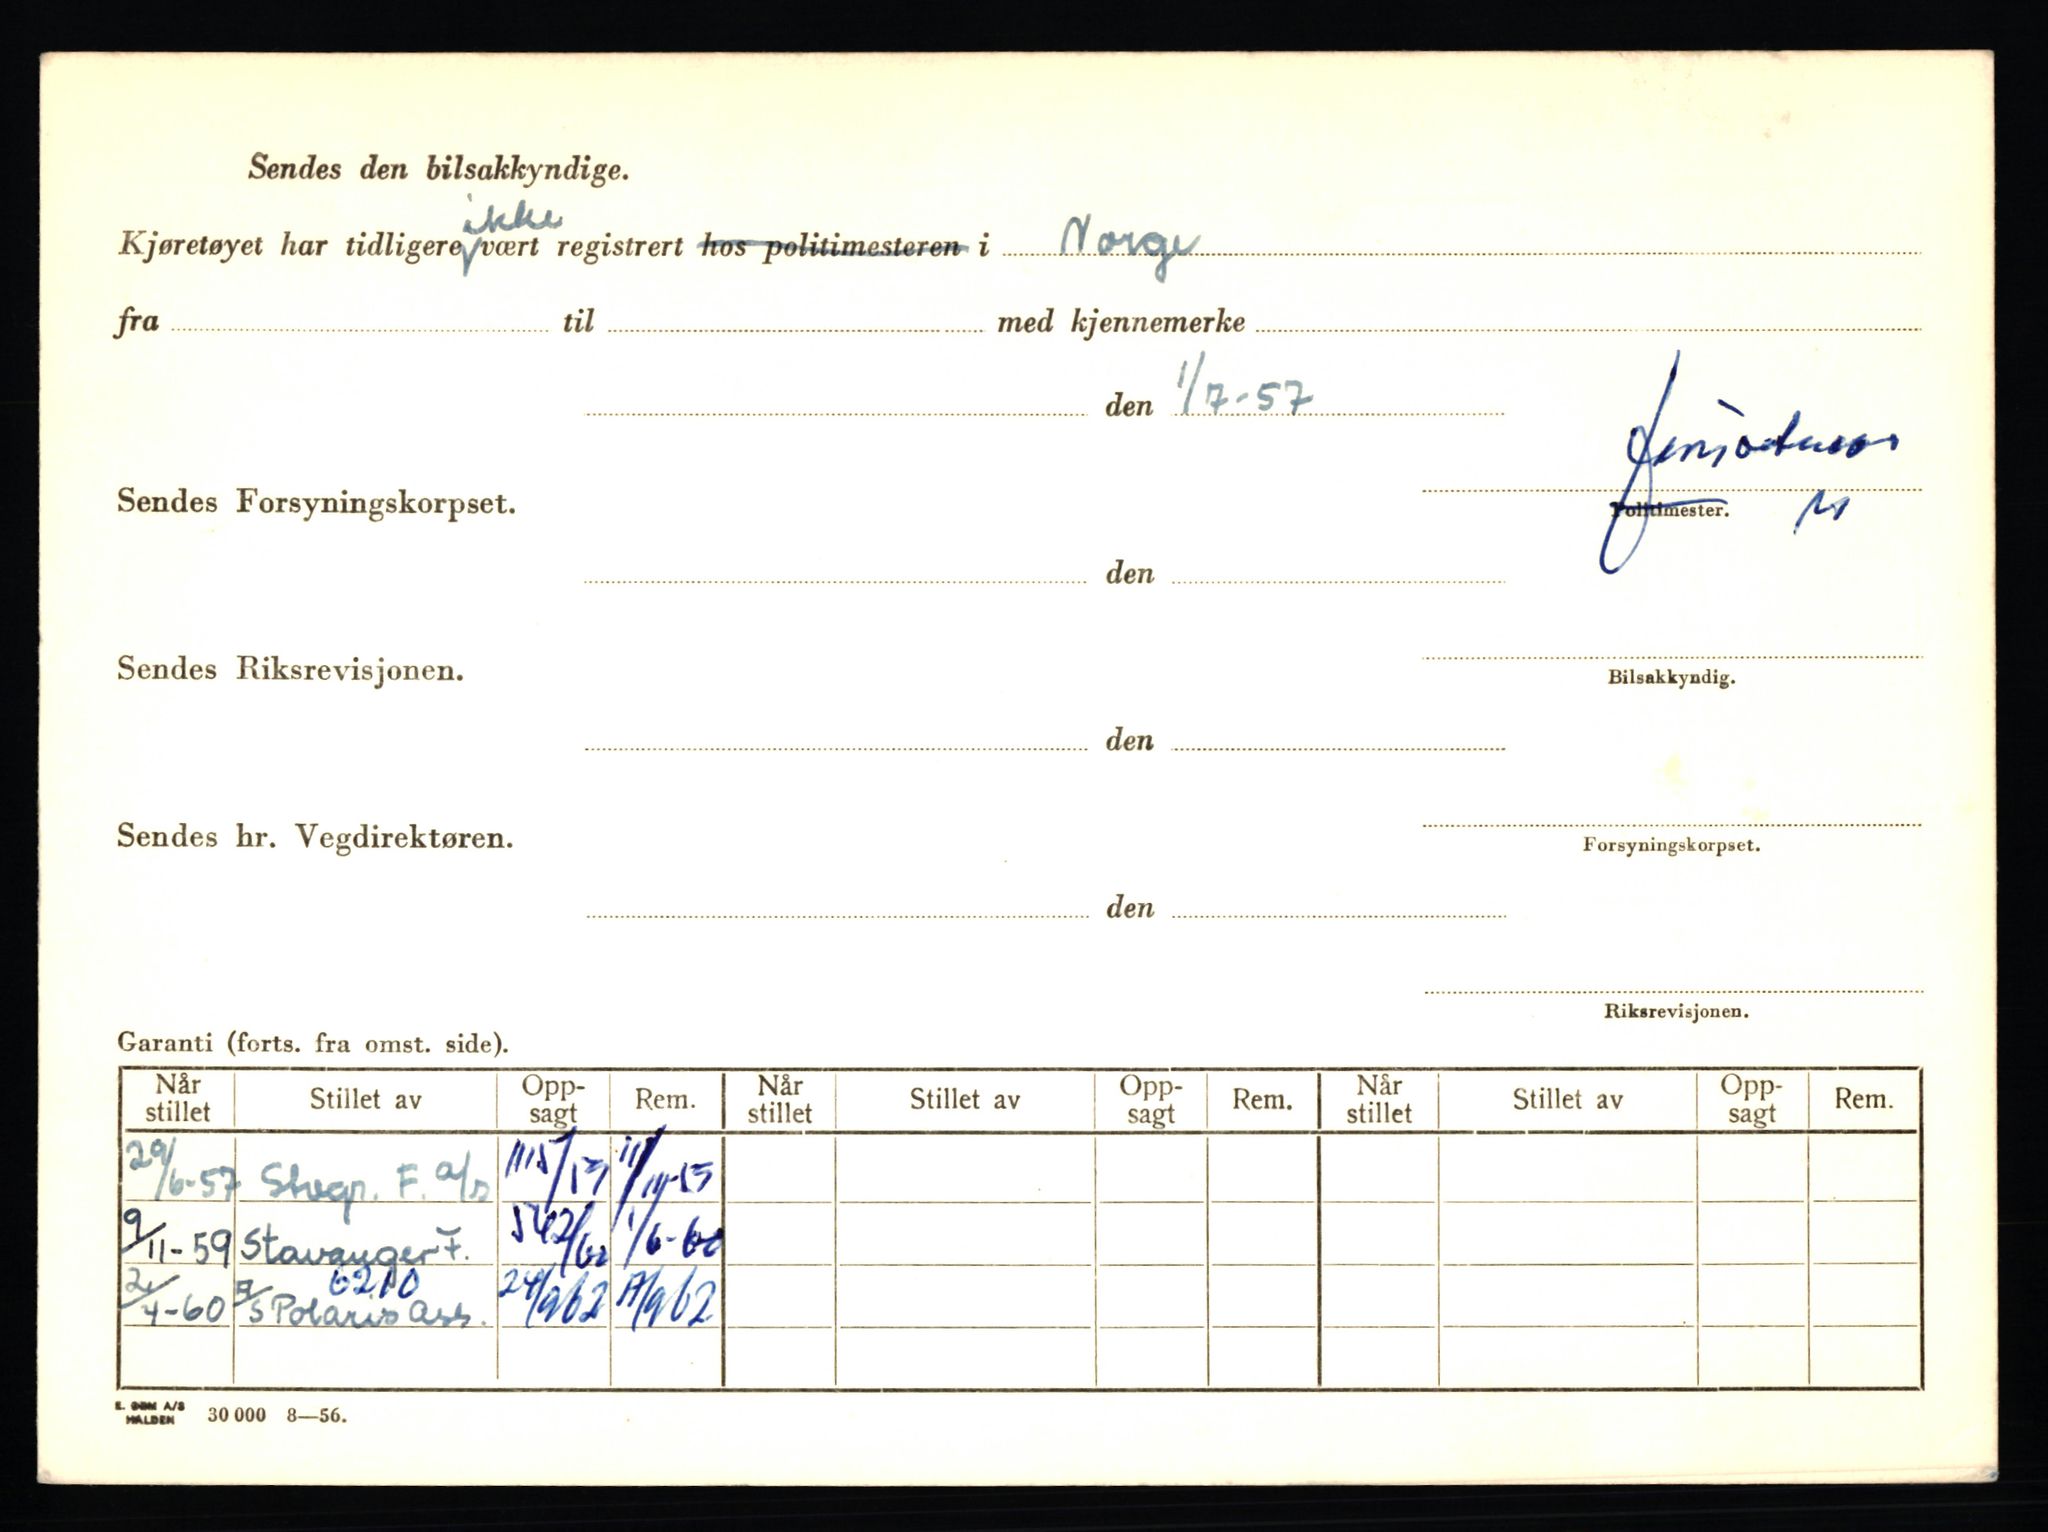 Sendes den bilsakkyndige.
ikke
Kjøretøyet har tidligere vært registrert hos politimesteren i Norge
fra til med kjennemerke
den 1/7-57
Sendes Forsyningskorpset.
Politimester.
den
Sendes Riksrevisjonen.
Bilsakkyndig.
den
Sendes hr. Vegdirektøren.
Forsyningskorpset.
den
Riksrevisjonen.
Garanti (forts. fra omst. side).
Når stillet Stillet av Opp-sagt Rem. Når stillet Stillet av Opp-sagt Rem. Når stillet Stillet av Opp-sagt Rem.
29/6-57 F. a/s
9/11-59 Stavanger F. 542/60 1/6-60
6210
2/4-60 A/S Polaris Ass. 24/9 62
E. SEM A/S
HALDEN 30 000 8—56.